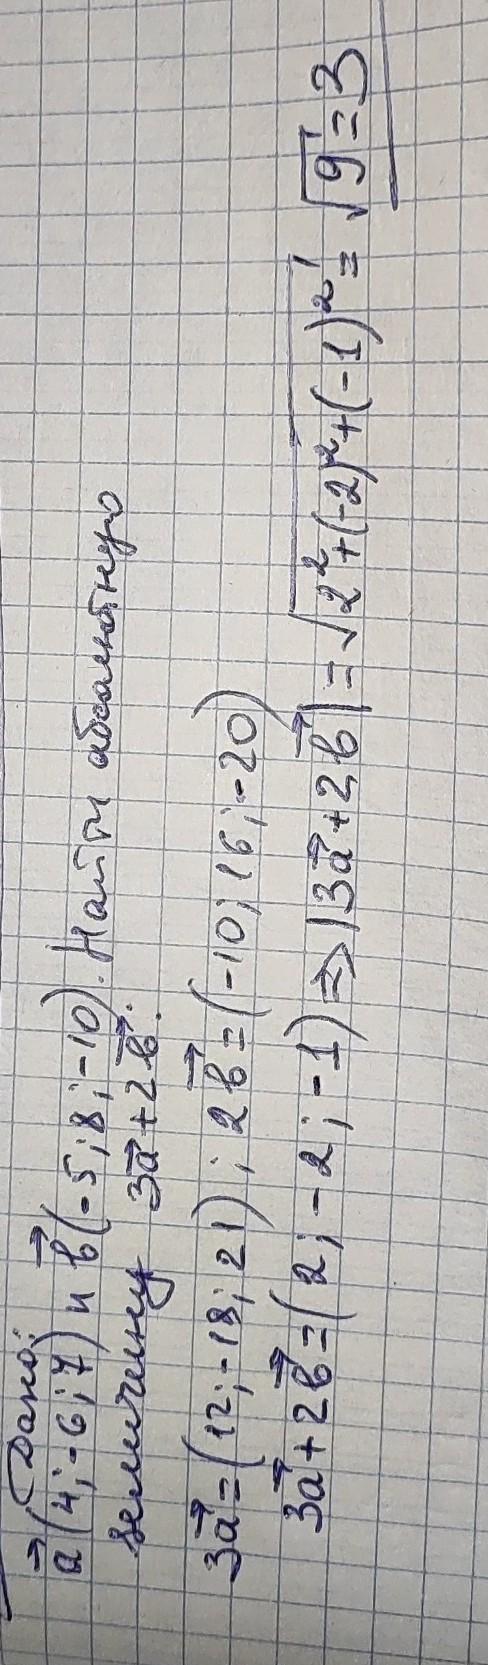 Дано:
a⃗(4;-6;7) и b⃗(-5;8;-10). Найти абсолютную
величину 3a⃗+2b⃗.
3a⃗=(12;-18;21); 2b⃗=(-10;16;-20)
3a⃗+2b⃗=(2;-2;-1)⇒|3a⃗+2b⃗|=√(2²+(-2)²+(-1)²)=√9=3